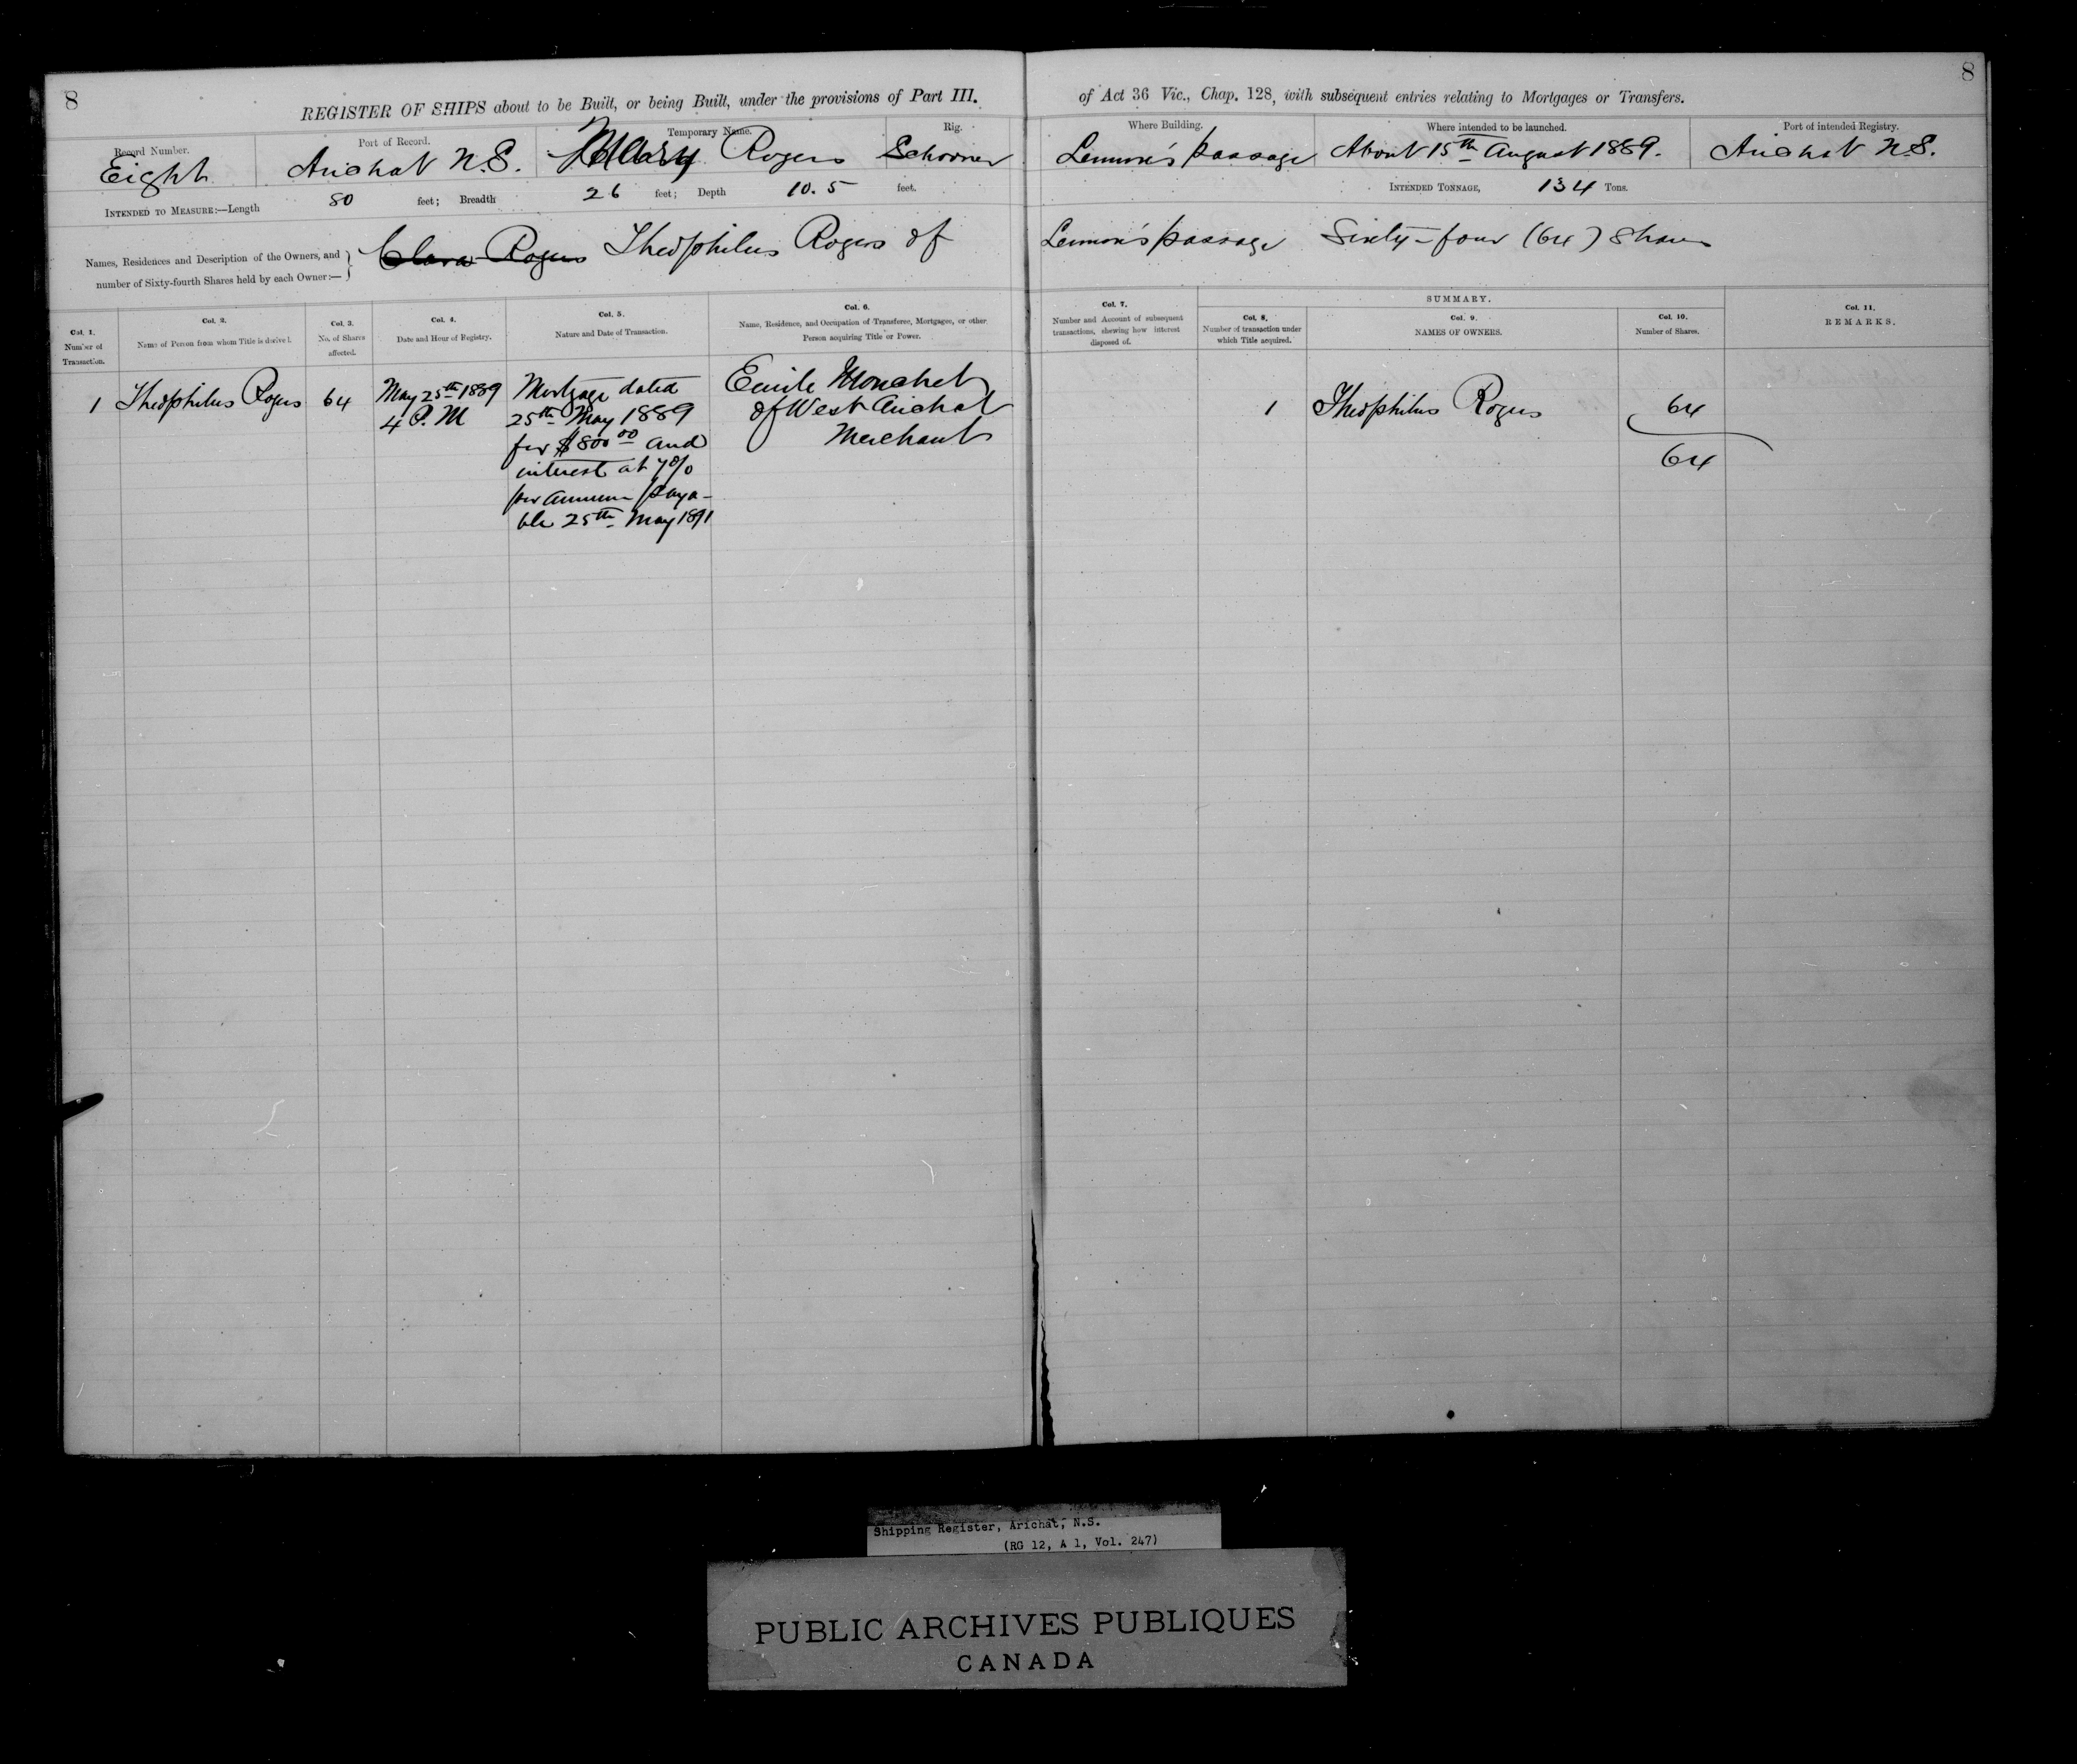 8
REGISTER OF SHIPS about to be Built, or being Built, under the provisions of Part III.
of Act 36 Vic., Chap. 128, with subsequent entries relating to Mortgages or Transfers.
8
Record Number.
Eight
Port of Record.
Arichat N.S.
Temporary Name.
Mary Rogers
Rig.
Schooner
Where Building.
Lennox's passage
Where intended to be launched.
About 15th August 1889.
Port of intended Registry.
Arichat N.S.
INTENDED TO MEASURE:—Length 80 feet; Breadth 26 feet; Depth 10.5 feet.
INTENDED TONNAGE, 134 Tons.
Names, Residences and Description of the Owners, and
number of Sixty-fourth Shares held by each Owner:—
Clara Rogers Theophilus Rogers of
Lennox's passage Sixty-four (64) Shares
Col. 1.
Number of
Transaction.
Col. 2.
Name of Person from whom Title is derived.
Col. 3.
No. of Shares
affected.
Col. 4.
Date and Hour of Registry.
Col. 5.
Nature and Date of Transaction.
Col. 6.
Name, Residence, and Occupation of Transferee, Mortgagee, or other
Person acquiring Title or Power.
Col. 7.
Number and Account of subsequent
transactions, shewing how interest
disposed of.
SUMMARY.
Col. 8.
Number of transaction under
which Title acquired.
Col. 9.
NAMES OF OWNERS.
Col. 10.
Number of Shares.
Col. 11.
REMARKS.
1
Theophilus Rogers
64
May 25th 1889
4 P.M
Mortgage dated
25th May 1889
for $800 00 and
interest at 7%
per annum paya-
ble 25th May 1891
Emile Mouchet
of West Arichat
Merchant
1
Theophilus Rogers
64
64
Shipping Register, Arichat, N.S.
(RG 12, A 1, Vol. 247)
PUBLIC ARCHIVES PUBLIQUES
CANADA